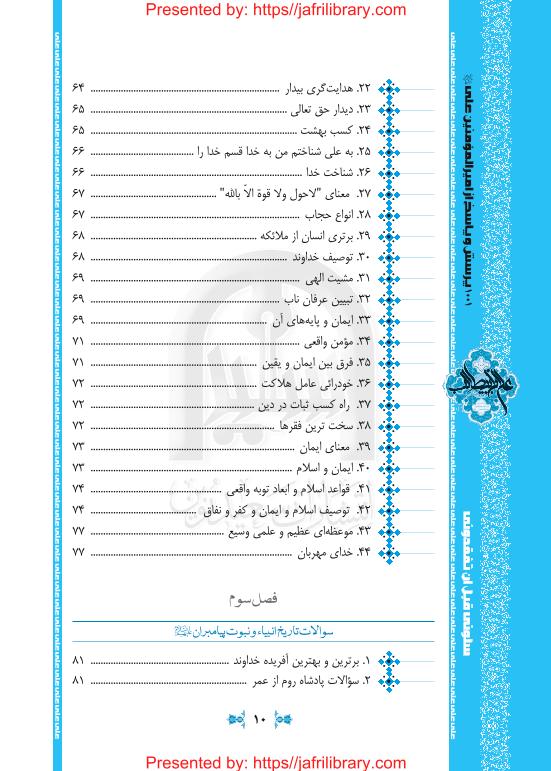 Presented by: https//jafrilibrary.com
۲۲. هدایت‌گری بیدار ........ ۶۴
۲۳. دیدار حق تعالی ........ ۶۵
۲۴. کسب بهشت ........ ۶۵
۲۵. به علی شناختم من به خدا قسم خدا را ........ ۶۶
۲۶. شناخت خدا ........ ۶۶
۲۷. معنای "لاحول ولا قوة الاّ بالله" ........ ۶۷
۲۸. انواع حجاب ........ ۶۷
۲۹. برتری انسان از ملائکه ........ ۶۸
۳۰. توصیف خداوند ........ ۶۸
۳۱. مشیت الهی ........ ۶۹
۳۲. تبیین عرفان ناب ........ ۶۹
۳۳. ایمان و پایه‌های آن ........ ۶۹
۳۴. مؤمن واقعی ........ ۷۱
۳۵. فرق بین ایمان و یقین ........ ۷۱
۳۶. خودرائی عامل هلاکت ........ ۷۲
۳۷. راه کسب ثبات در دین ........ ۷۲
۳۸. سخت ترین فقرها ........ ۷۲
۳۹. معنای ایمان ........ ۷۳
۴۰. ایمان و اسلام ........ ۷۳
۴۱. قواعد اسلام و ابعاد توبه واقعی ........ ۷۴
۴۲. توصیف اسلام و ایمان و کفر و نفاق ........ ۷۴
۴۳. موعظه‌ای عظیم و علمی وسیع ........ ۷۷
۴۴. خدای مهربان ........ ۷۷
فصل سوم
سوالات تاریخ انبیاء و نبوت پیامبران
۱. برترین و بهترین آفریده خداوند ........ ۸۱
۲. سؤالات پادشاه روم از عمر ........ ۸۱
۱۰
۱۰۰۱ پرسش و پاسخ از امیرالمؤمنین علی
سلونی قبل ان تفقدونی
Presented by: https//jafrilibrary.com